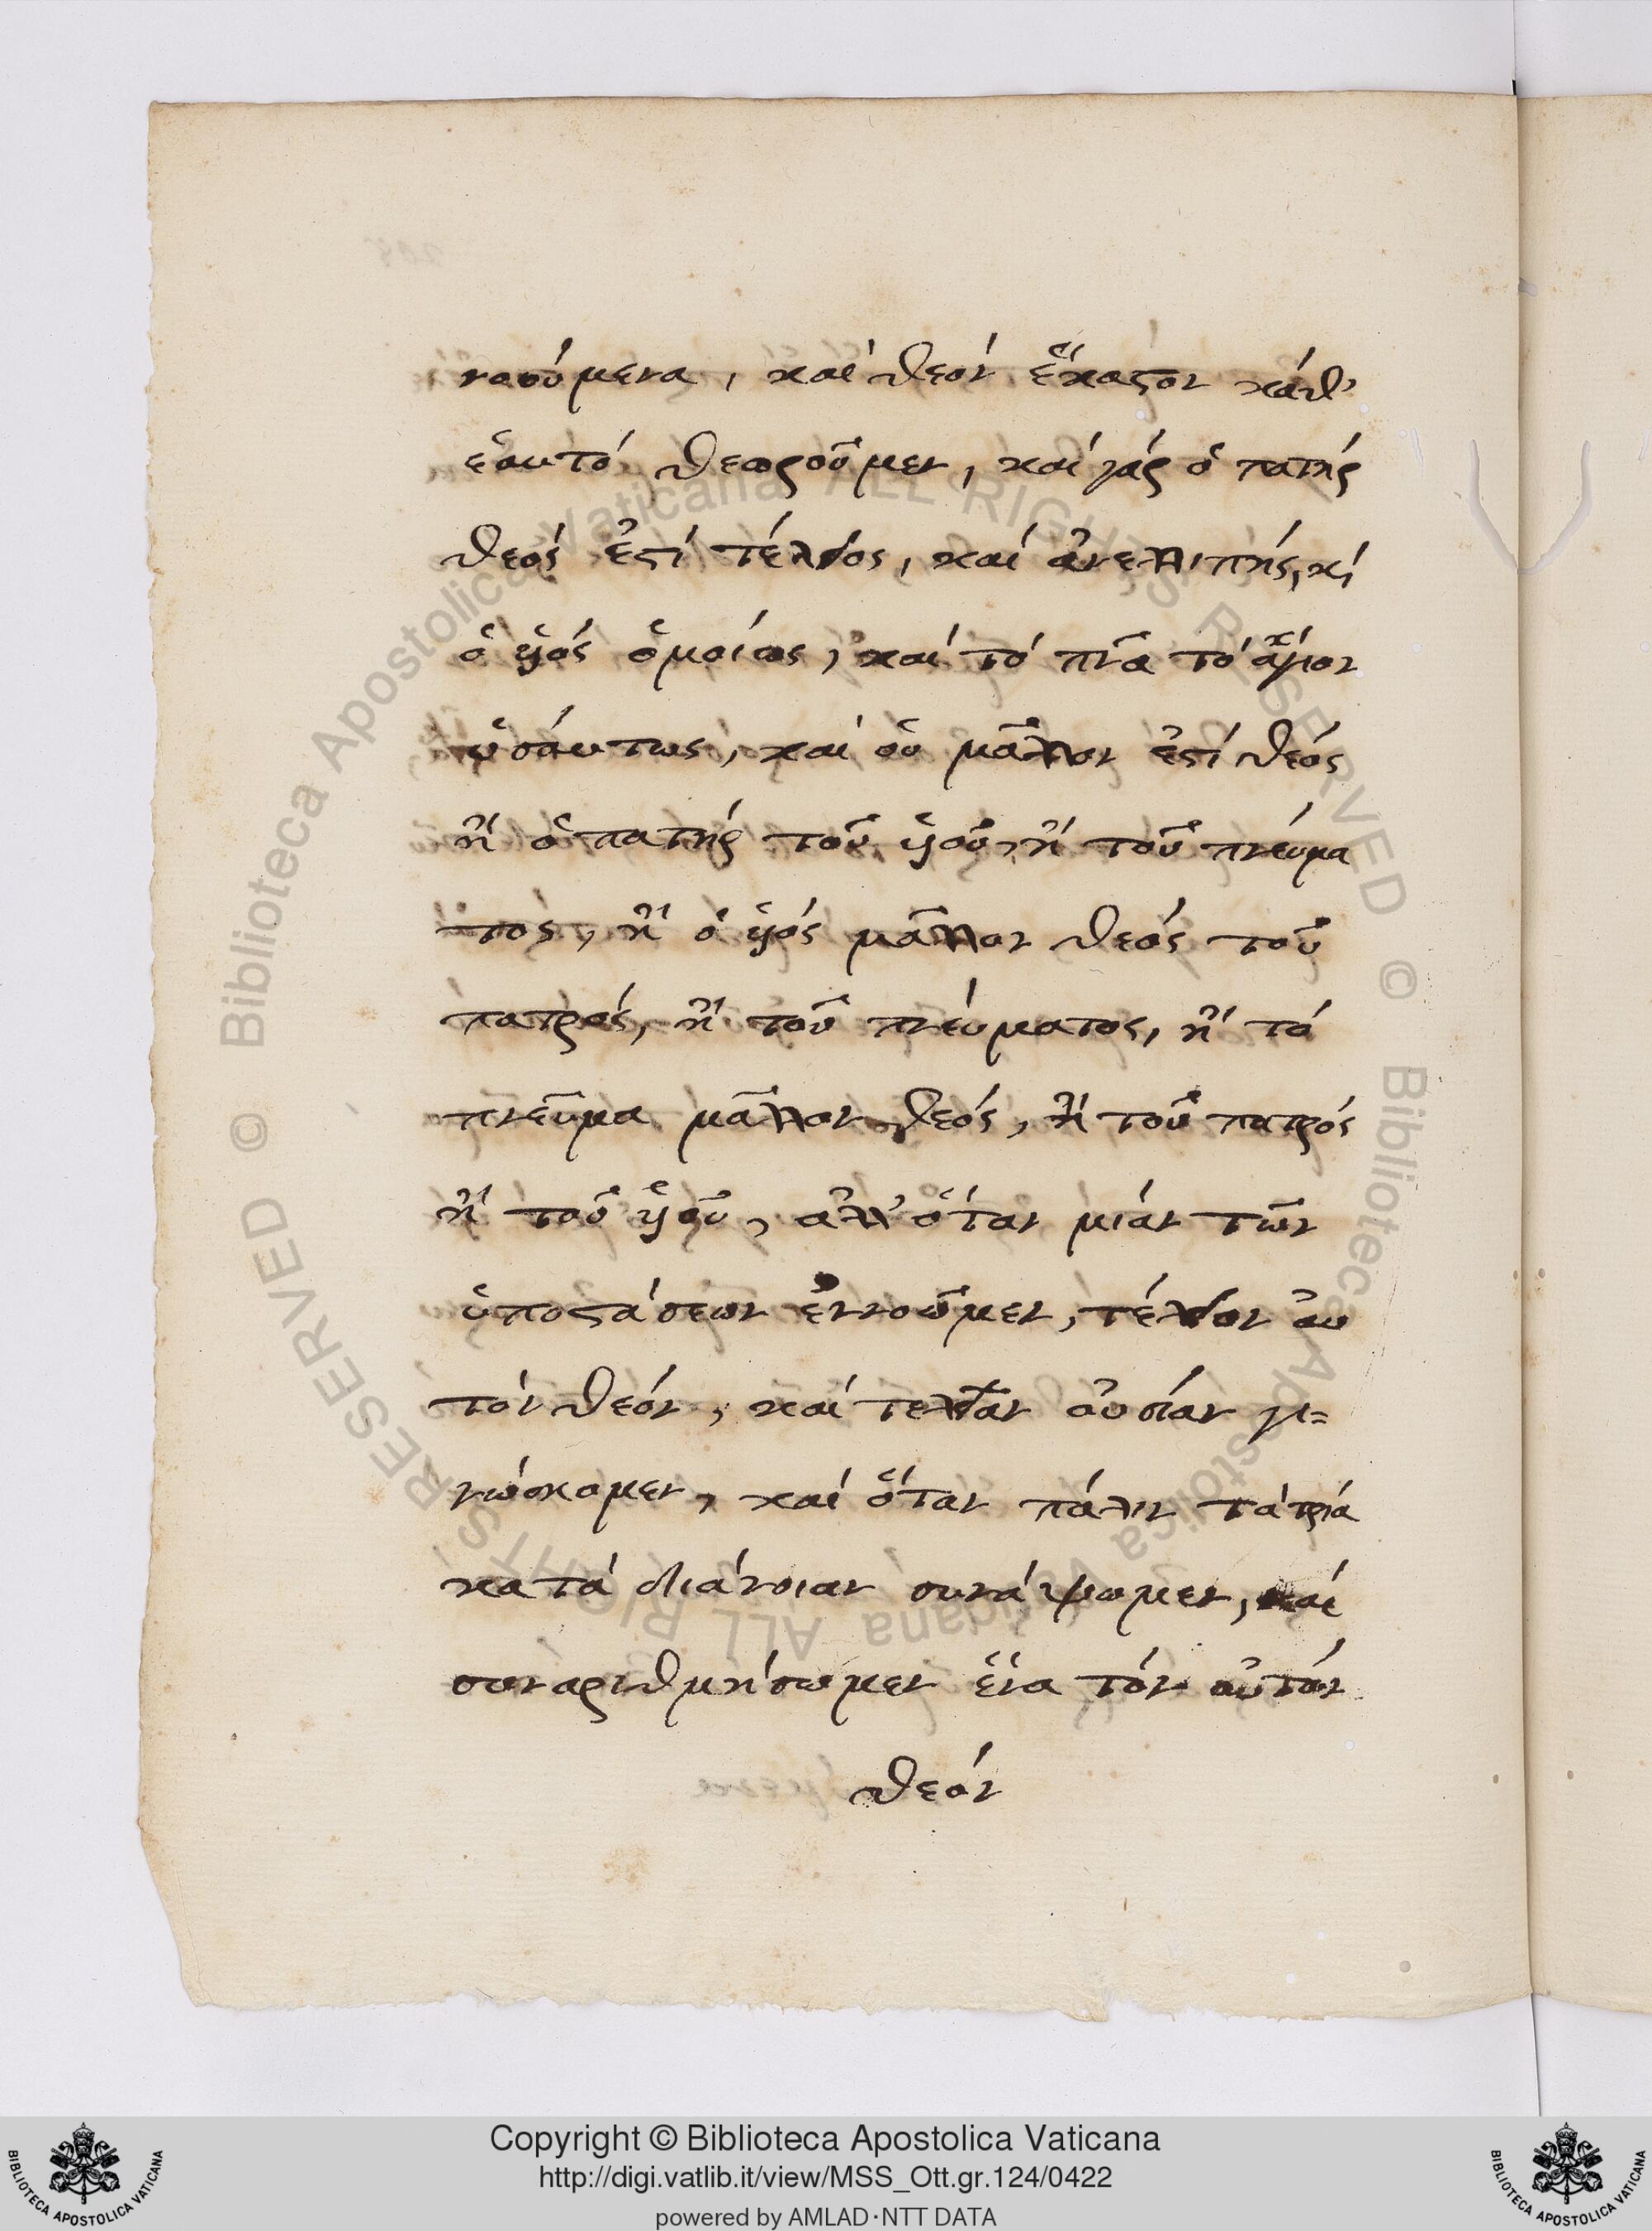 νοούμενα, καὶ θεὸν ἕκαστον καθ'
ἑαυτὸ θεωροῦμεν, καὶ γὰρ ὁ πατὴρ
θεός ἐστι τέλειος, καὶ ἀνελλιπὴς, κỳ
ὁ ὑιὸς ὁμοίως, καὶ τὸ πν͂α τὸ ἅγιον
ὡσάυτως, καὶ οὐ μᾶλλον ἐστὶ θεός
ἢ ὁ πατὴρ τοῦ ὑιοῦ, ἢ τοῦ πνέυμα
τος, ἢ ὁ ὑιὸς μᾶλλον θεός τοῦ
πατρός, ἢ τοῦ πνέυματος, ἢ τὸ
πνεῦμα μᾶλλον θεός, ἢ τοῦ πατρός
ἢ τοῦ ὑιοῦ, ἀλλ' ὅταν μίαν τῶν
ὑποστάσεων ἐννοῶμεν, τέλειον αὐ
τὸν θεόν, καὶ τελείαν οὐσίαν γι=
νώσκομεν, καὶ ὅταν πάλιν τὰ τρία
κατὰ διάνοιαν συνάψωμεν, καὶ
συναριθμήσωμεν ἕνα τὸν αὐτὸν
θεόν
© Biblioteca Apostolica Vaticana ALL RIGHTS RESERVED © Biblioteca Apostolica Vaticana ALL RIGHTS RESERVED
Copyright © Biblioteca Apostolica Vaticana
http://digi.vatlib.it/view/MSS_Ott.gr.124/0422
powered by AMLAD·NTT DATA
BIBLIOTECA APOSTOLICA VATICANA
BIBLIOTECA APOSTOLICA VATICANA